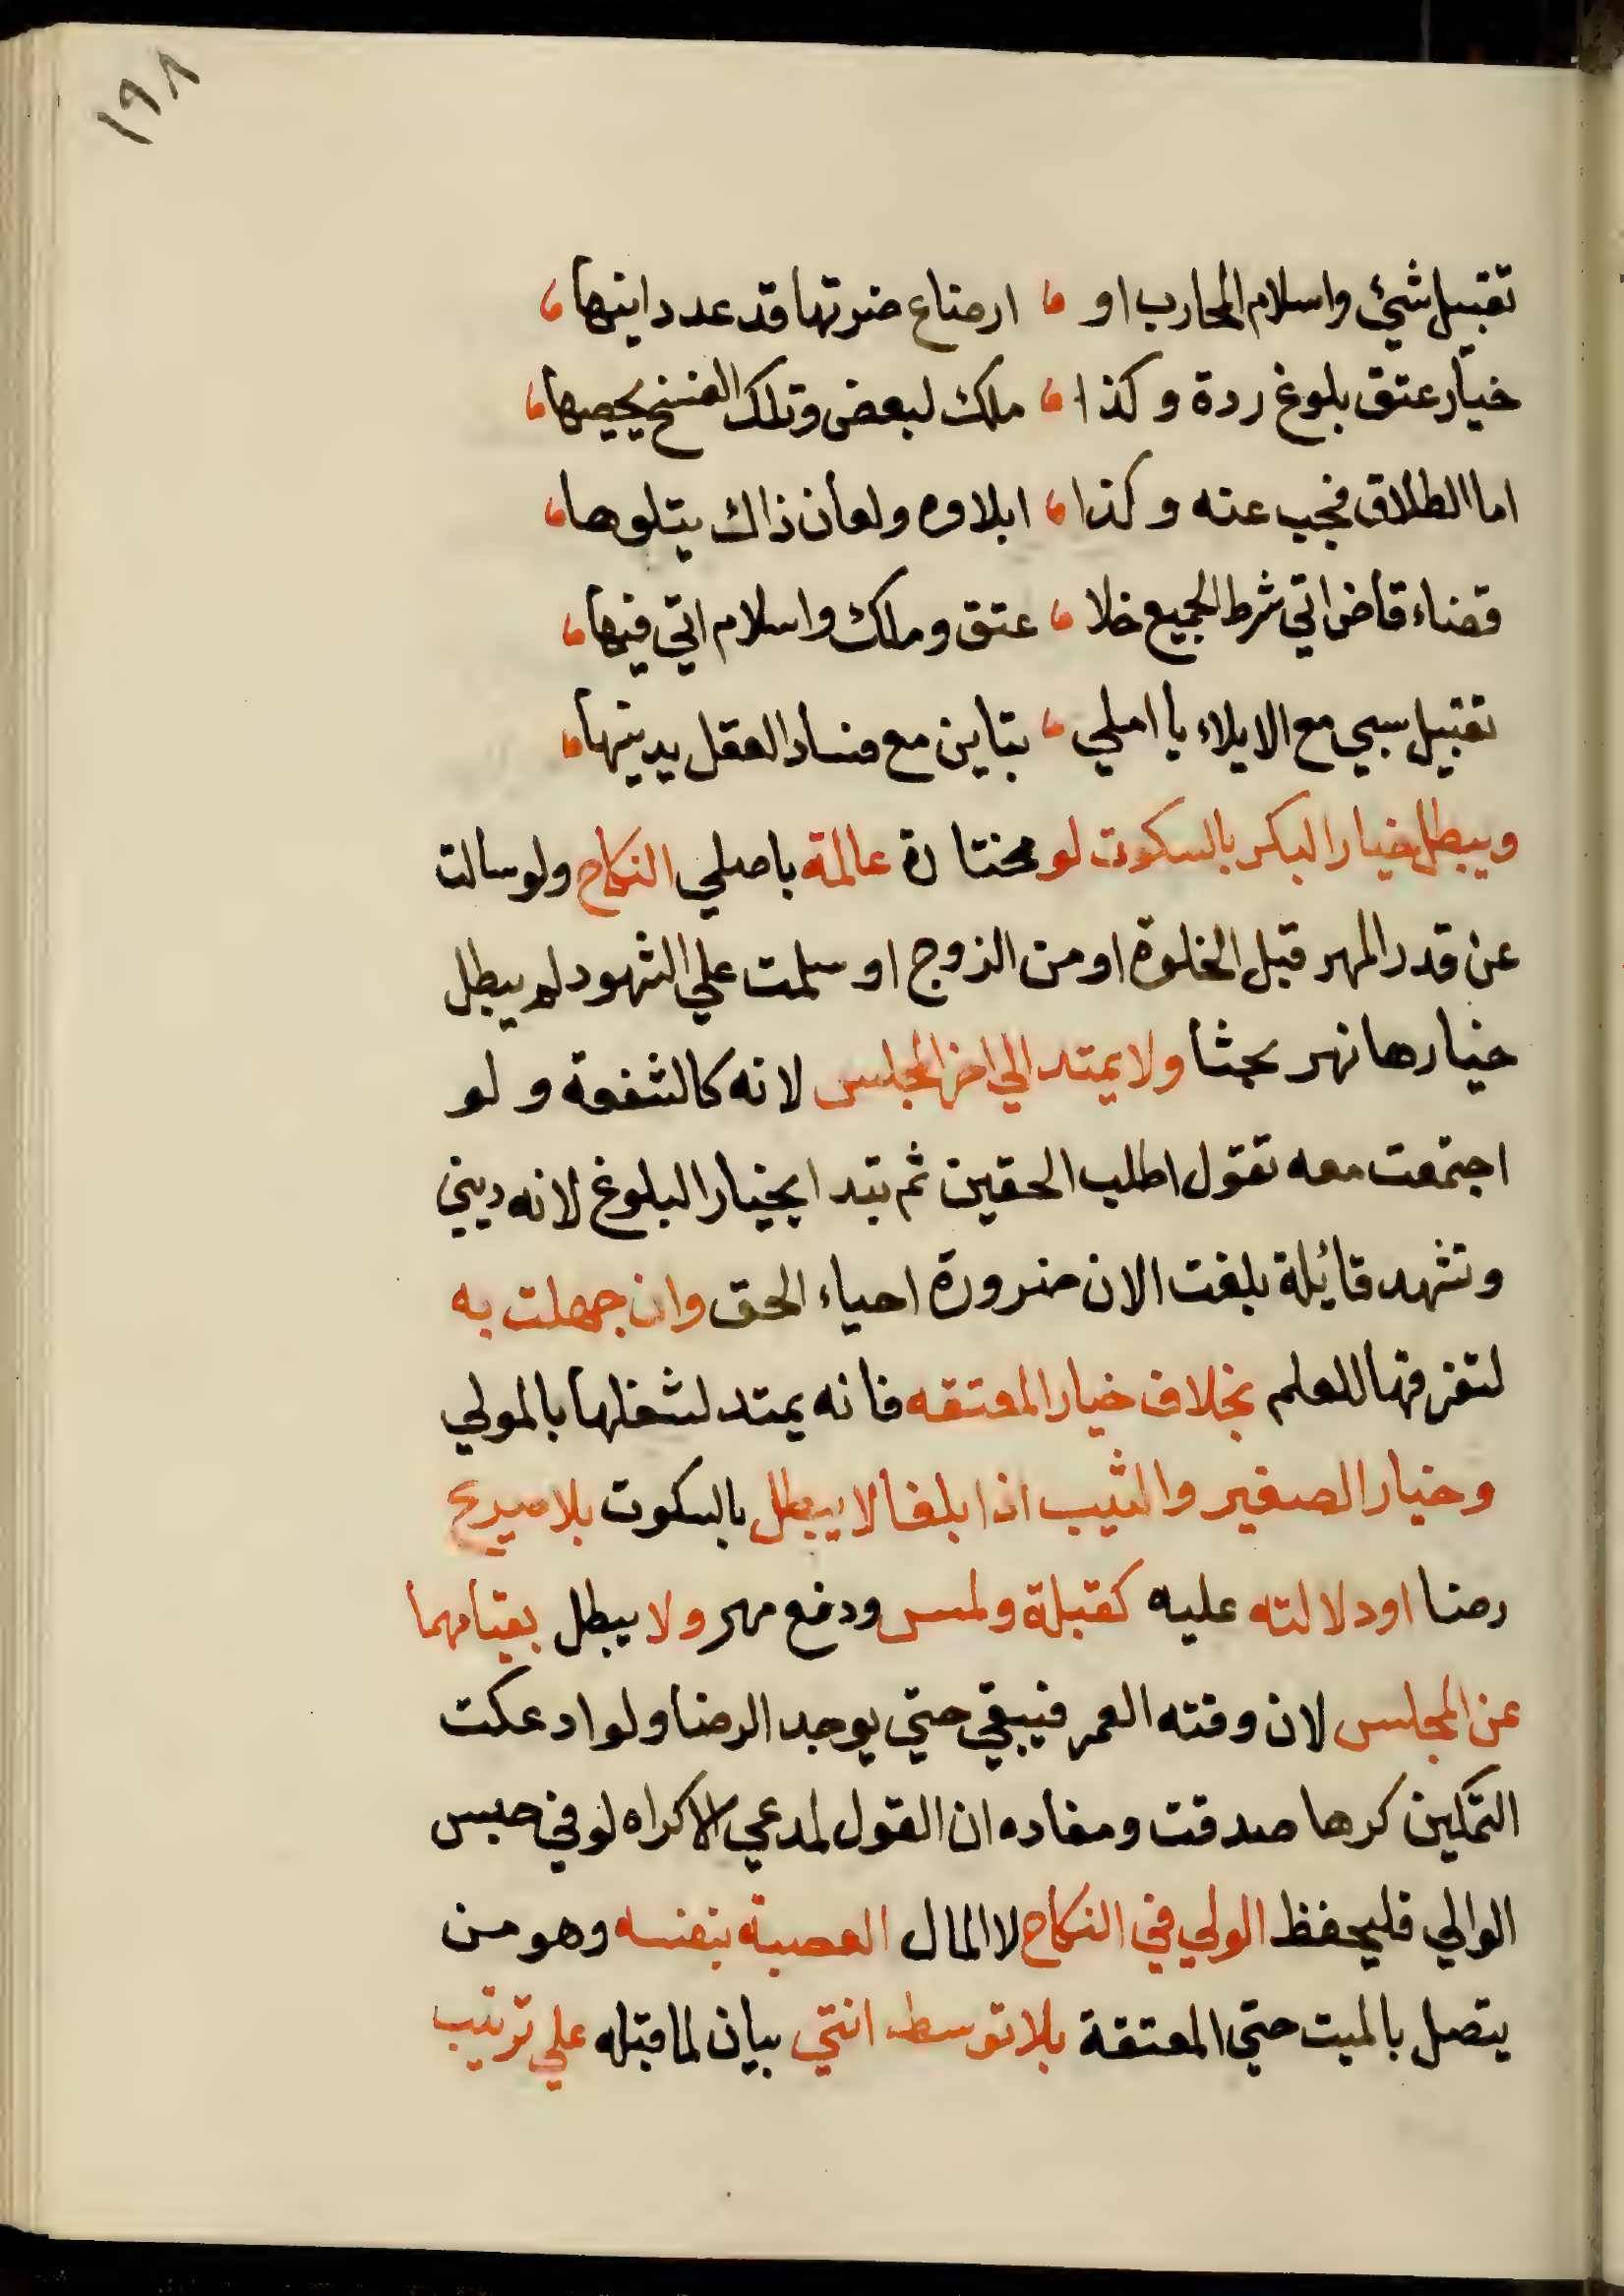 ١٩٨
تقبيل شئ واسلام المحارب او ، ارضاع ضرتها قد عد دانيها ،
خيار عتق بلوغ ردة وكذا ، ملك لبعض وتلك الفسخ يحيصها ،
اما الطلاق فجب عنه وكذا ، ابلاوه ولعان ذاك يتلوها ،
قضاء قاض اتي شرط الجميع خلا ، عتق وملك واسلام اتي فيها ،
تقبيل سبي مع الايلاء يا املي ، بتاين مع فساد العقل يدينها ،
ويبطل خيار البكر بالسكوت لو مختارة عالمة باصلي النكاح ولو سالت
عن قدر المهر قبل الخلوة او من الزوج او سلمت علي الشهود لم يبطل
خيارها نهر بحثا ولا يمتد الي اخر المجلس لانه كالشفعة ولو
اجتمعت معه تقول اطلب الحقين ثم تبدا بخيار البلوغ لانه ديني
وتشهد قائلة بلغت الان ضرورة احياء الحق وان جهلت به
لتفرقها للعلم بخلاف خيار المعتقه فانه يمتد لشغلها بالمولي
وخيار الصغير والثيب اذا بلغا لا يبطل بالسكوت بلا صريح
رضا او دلالته عليه كقبلة ولمس ودفع مهر ولا يبطل بقيامهما
عن المجلس لان وقته العمر فيبقي حتي يوجد الرضا ولو ادعكت
التمكين كرها صدقت ومفاده ان القول لمدعي الاكراه لو في حبس
الوالي فليحفظ الولي في النكاح لا المال العصبة بنفسه وهو من
يتصل بالميت حتي المعتقة بلا توسط انثي بيان لما قبله علي ترتيب